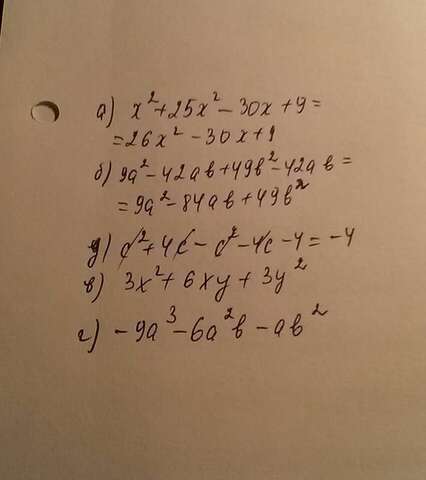 а) x²+25x²-30x+9=
=26x²-30x+9
б) 9a²-42ab+49b²-42ab=
=9a²-84ab+49b²
д) c²+4c-c²-4c-4=-4
в) 3x²+6xy+3y²
г) -9a³-6a²b-ab²